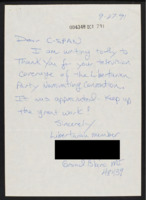 9-27-
Dear C-SPAN
I am writing today to
Thank you for your television
coverage of the Libertarian
Party Nominating Convention
It was appreciated. Keep up
the great work!
Sincerely
Libertarian member
Grand Blanc MI
48439